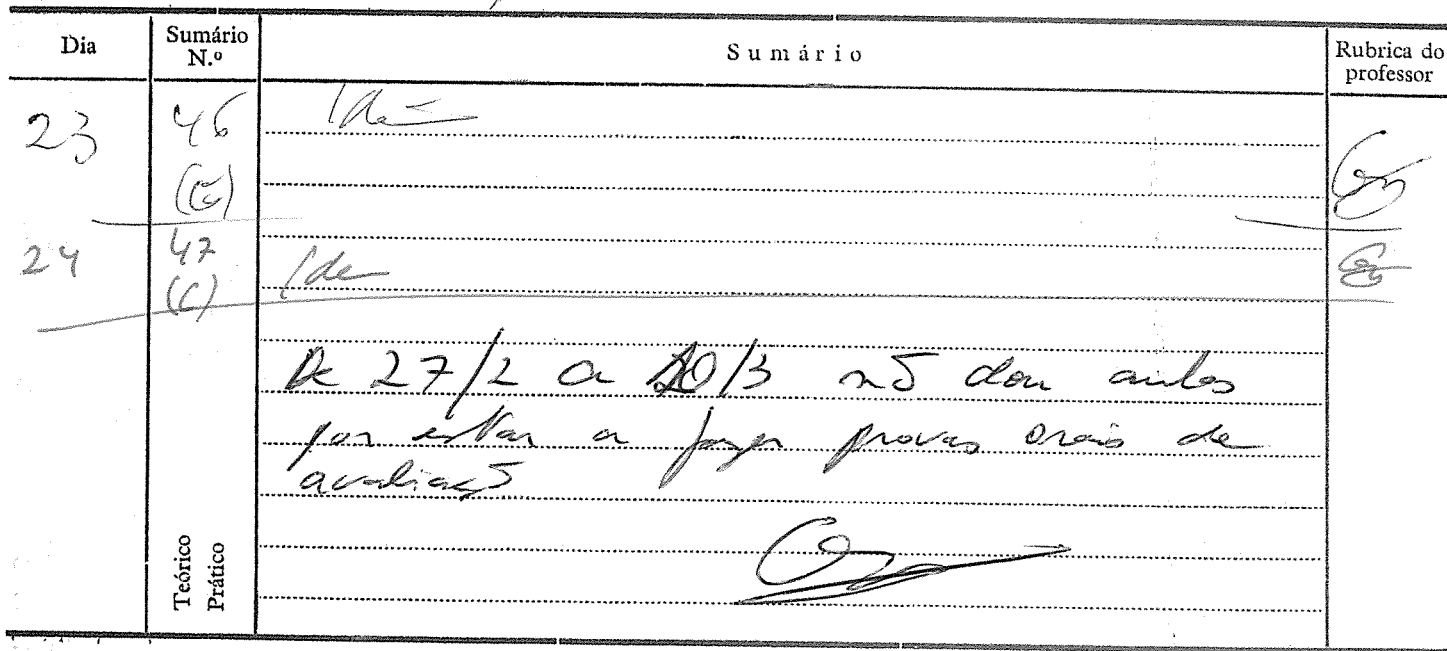 Dia Sumário N.º Sumário Rubrica do professor
23 46 Idem
(E)
24 47 Ide
(C)
De 27/2 a 10/3 nõ dou aulas
por estar a fazer provas orais de
avaliaçõ
Teórico
Prático